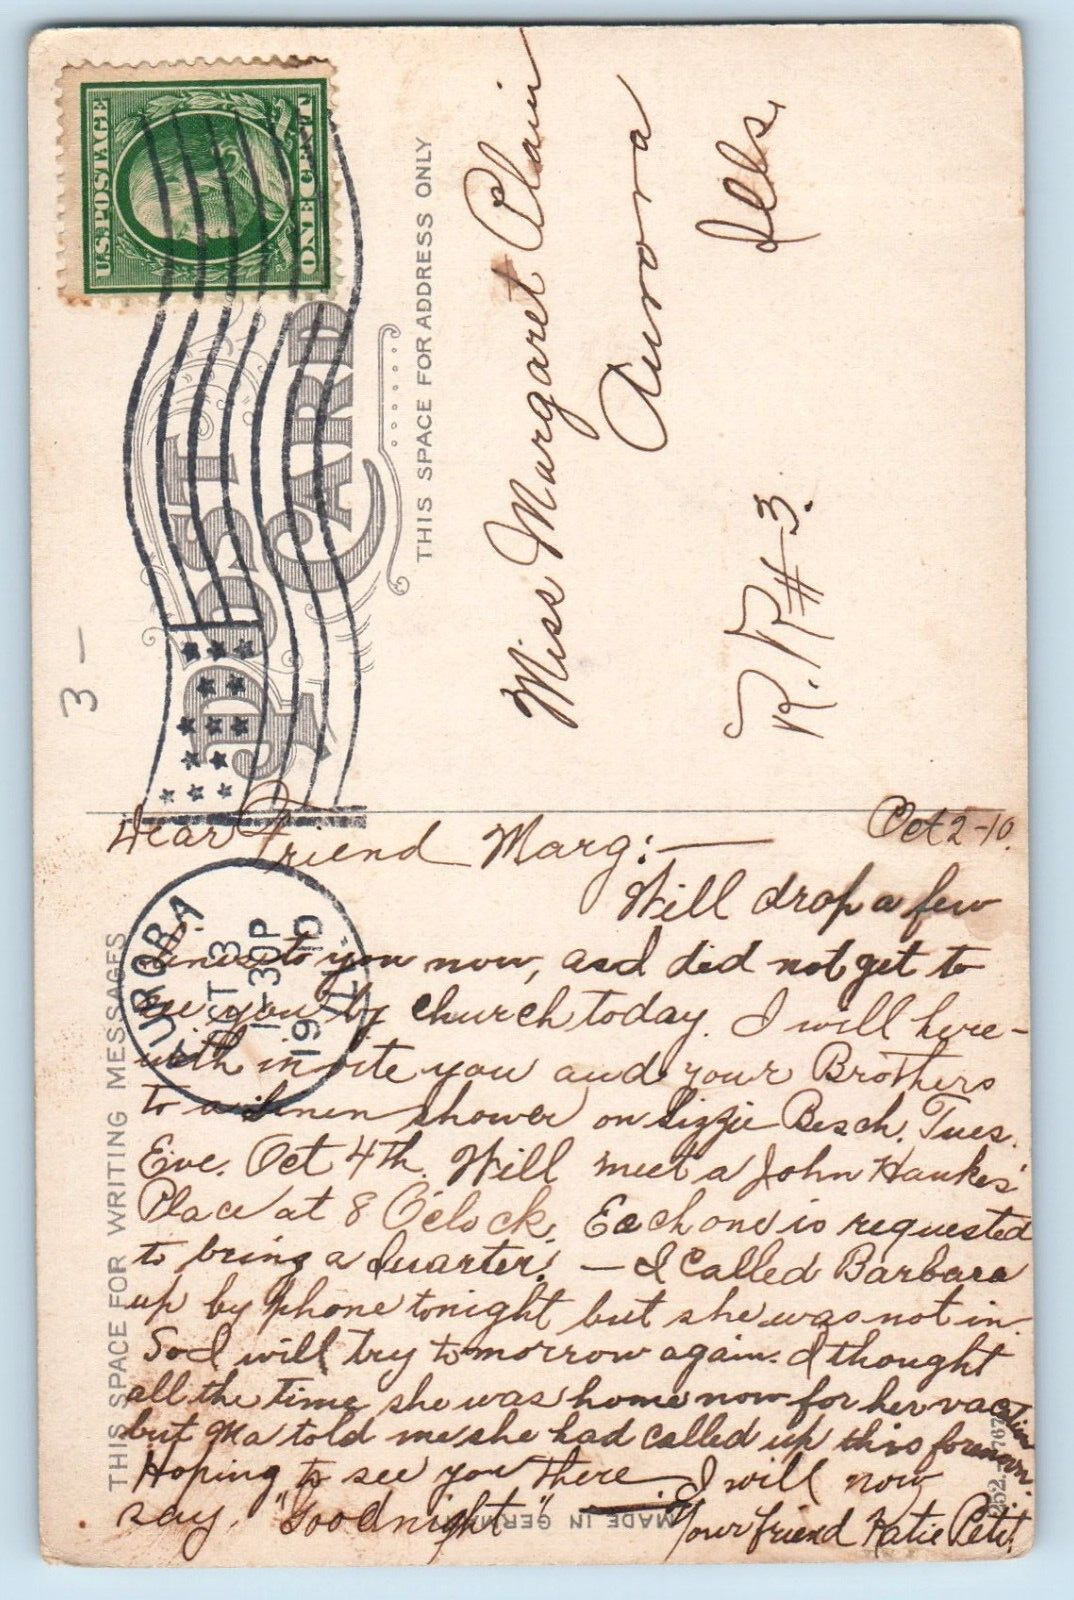 U.S. POSTAGE
ONE CENT
POST CARD
THIS SPACE FOR ADDRESS ONLY
Miss Margaret Plain
Aurora
Ills.
R.R # 3.
3 -
THIS SPACE FOR WRITING MESSAGES
AURORA
OCT 3
1-30P
1910
ILL.
Oct 2-10.
Dear Friend Marg:—
Will drop a few
lines to you now, asd did not get to
see you by church today. I will here-
with invite you and your Brothers
to a linen shower on Lizzie Besch. Tues.
Eve. Oct 4th. Will meet a John Haukes'
Place at 8 O'clock. Each one is requested
to bring a quarter. — I called Barbara
up by phone tonight but she was not in.
So I will try tomorrow again. I thought
all the time she was home now for her vacation
but Ma told me she had called up this forenoon.
Hoping to see you there I will now
say. "Goodnight" Your friend Katie Petit.
MADE IN GERMANY